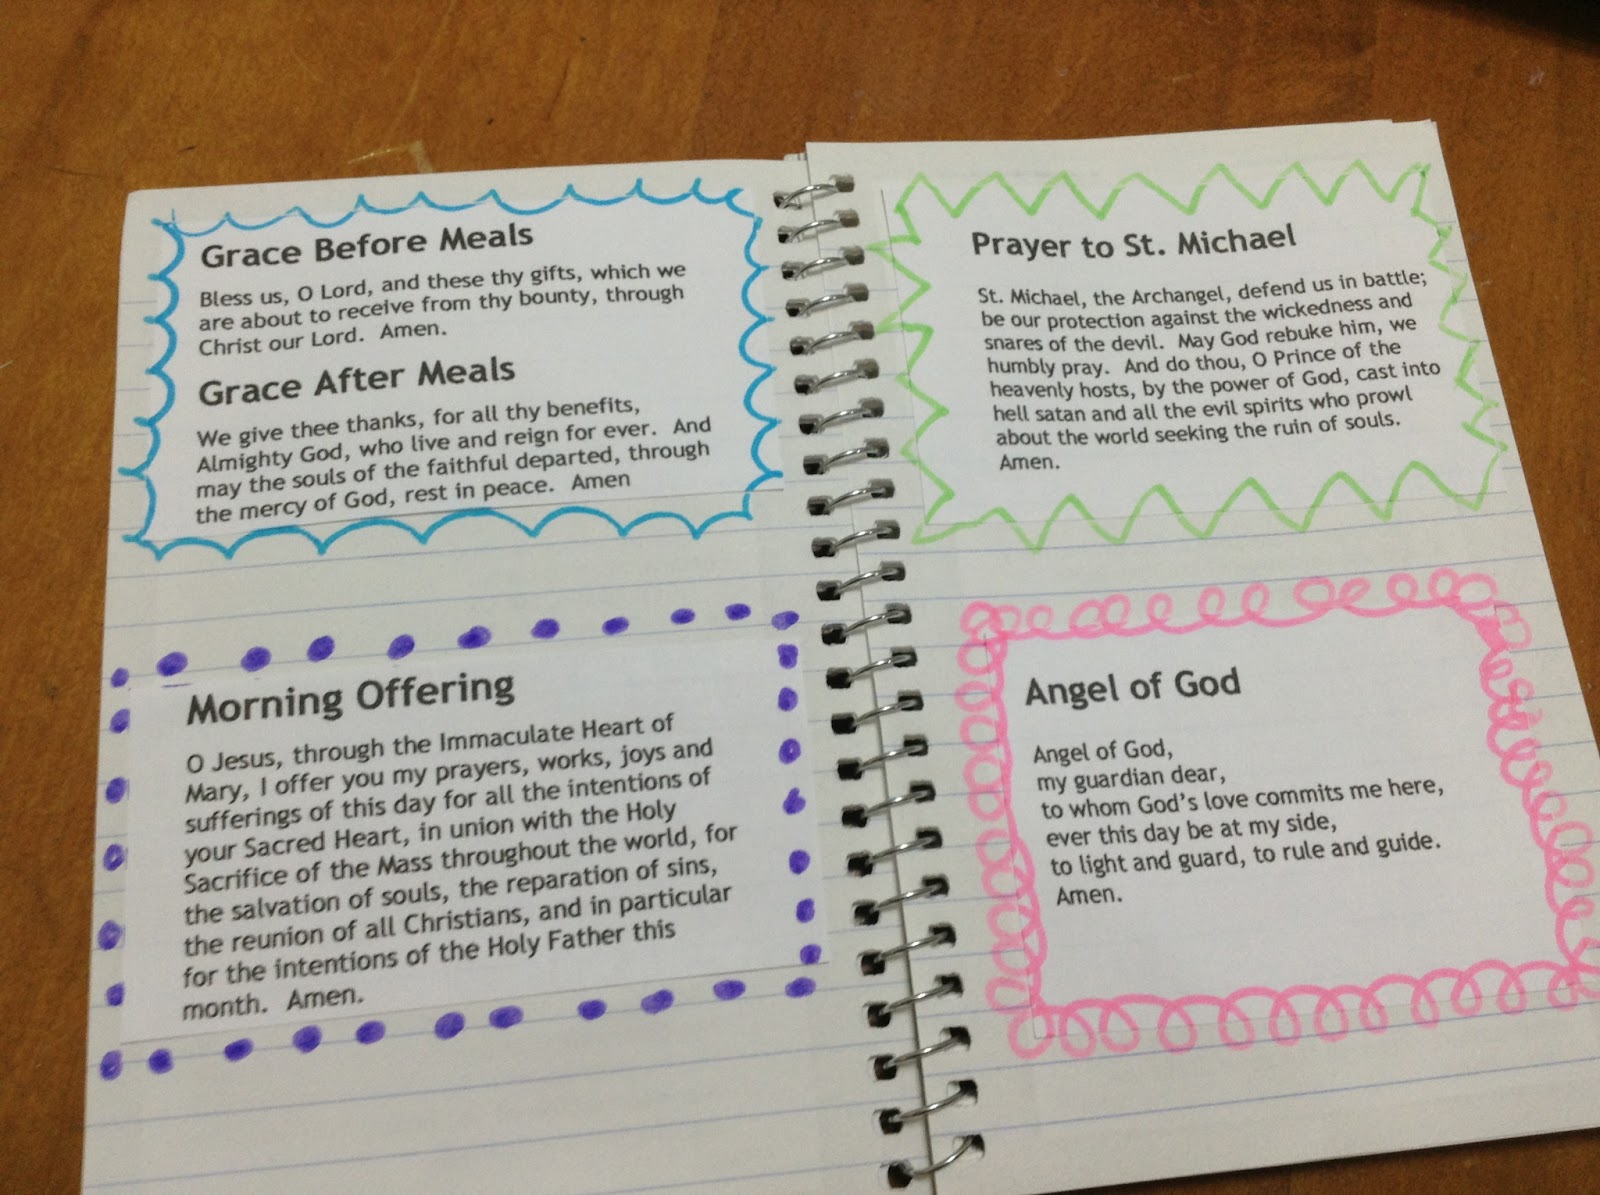 Grace Before Meals
Bless us, O Lord, and these thy gifts, which we
are about to receive from thy bounty, through
Christ our Lord.  Amen.
Grace After Meals
We give thee thanks, for all thy benefits,
Almighty God, who live and reign for ever.  And
may the souls of the faithful departed, through
the mercy of God, rest in peace.  Amen
Morning Offering
O Jesus, through the Immaculate Heart of
Mary, I offer you my prayers, works, joys and
sufferings of this day for all the intentions of
your Sacred Heart, in union with the Holy
Sacrifice of the Mass throughout the world, for
the salvation of souls, the reparation of sins,
the reunion of all Christians, and in particular
for the intentions of the Holy Father this
month.  Amen.
Prayer to St. Michael
St. Michael, the Archangel, defend us in battle;
be our protection against the wickedness and
snares of the devil.  May God rebuke him, we
humbly pray.  And do thou, O Prince of the
heavenly hosts, by the power of God, cast into
hell satan and all the evil spirits who prowl
about the world seeking the ruin of souls.
Amen.
Angel of God
Angel of God,
my guardian dear,
to whom God's love commits me here,
ever this day be at my side,
to light and guard, to rule and guide.
Amen.